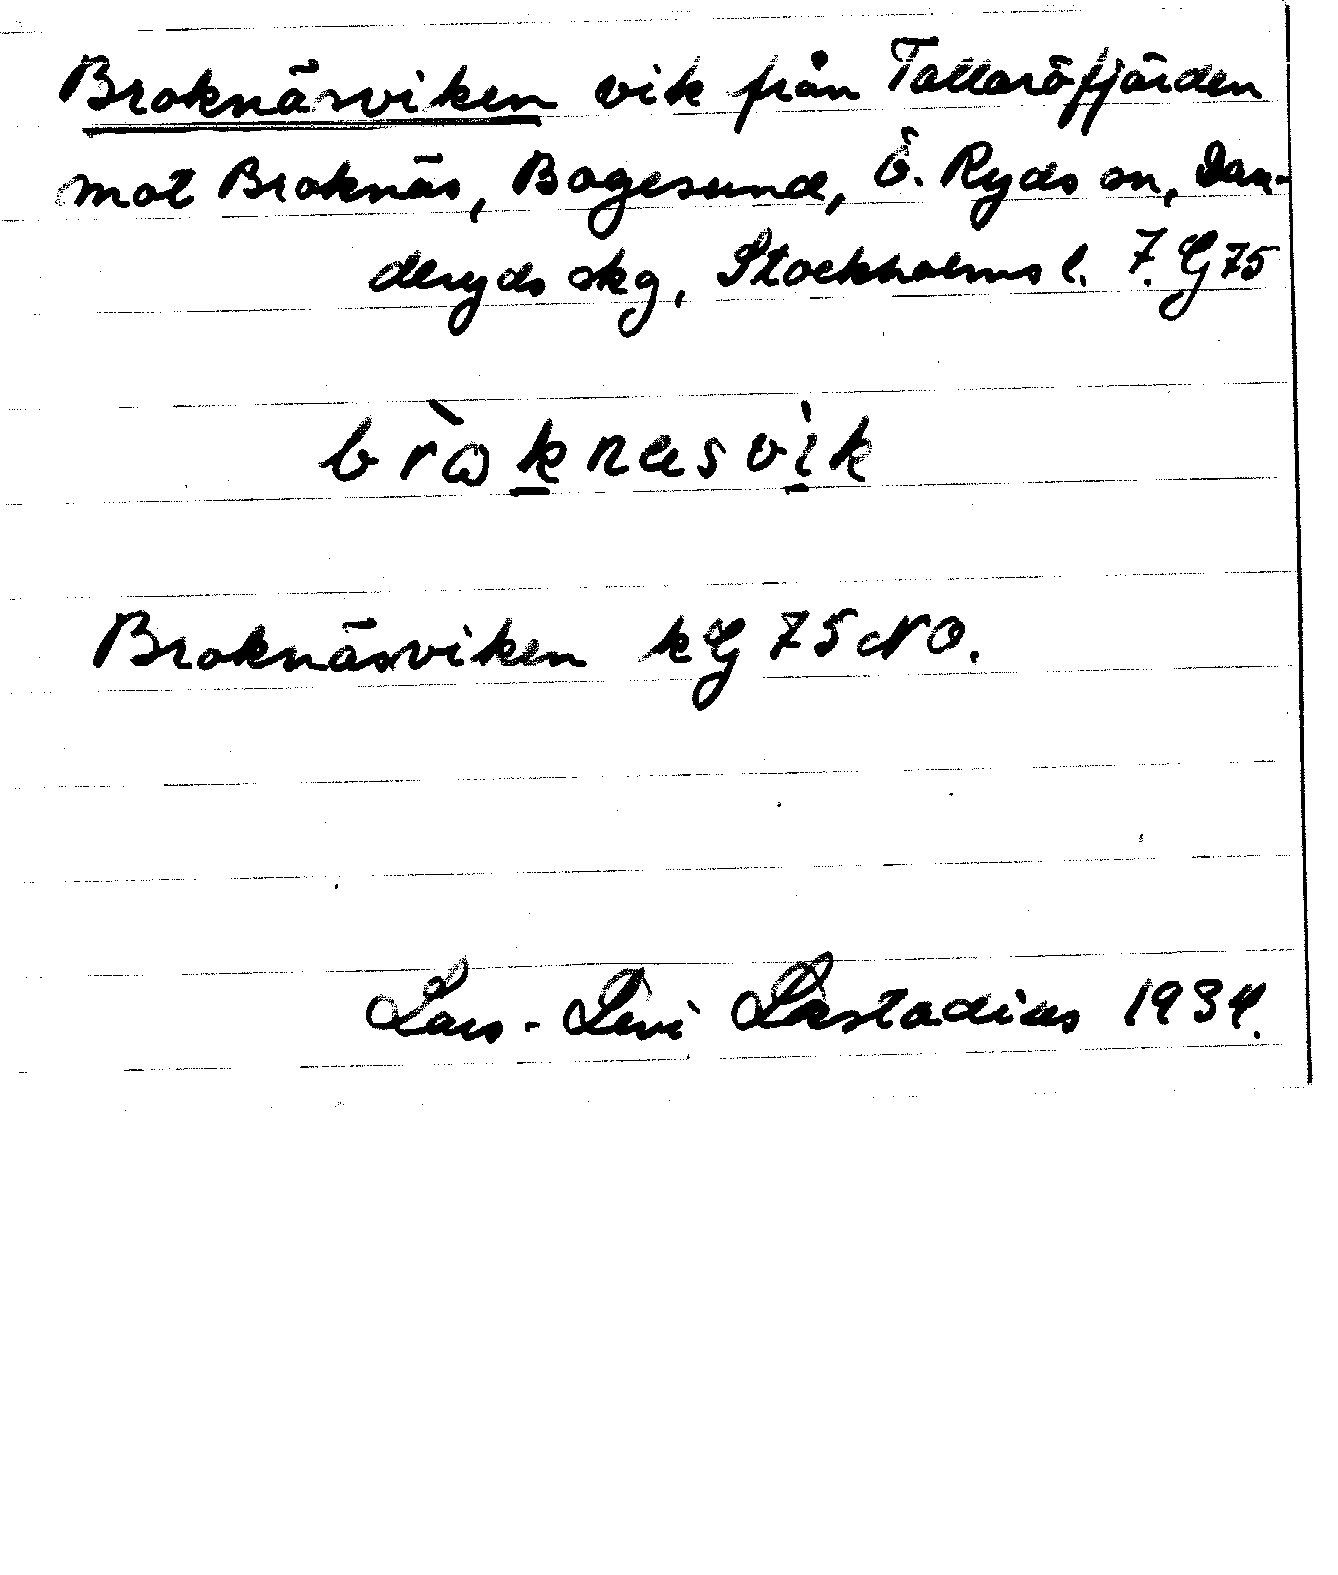 Broknäsviken vik från Tallaröfjärden
mot Broknäs, Bogesund, Ö. Ryds sn, Dan-
deryds skg, Stockholms l. 7. G75
bròknæsvìk
Broknäsviken kG 75 NO.
Lars-Levi Læstadius 1934.